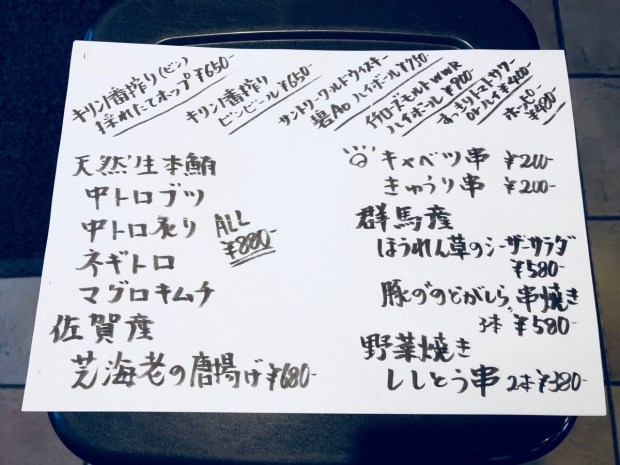 キリン一番搾り(ビン)
採れたてホップ ¥650-
キリン一番搾り
ビンビール ¥650-
サントリーワールドウイスキー
碧Ao ハイボール ¥750-
ハイボール ¥700-
すっきりトマトサワー
orハイ ¥400-
¥480-
天然生本鮪
中トロブツ
中トロ炙り ALL
¥880-
ネギトロ
マグロキムチ
佐賀産
芝海老の唐揚げ ¥680-
キャベツ串 ¥200-
きゅうり串 ¥200-
群馬産
ほうれん草のシーザーサラダ
¥580-
豚ののどがしら串焼き
3本 ¥580-
野菜焼き
ししとう串 2本 ¥380-